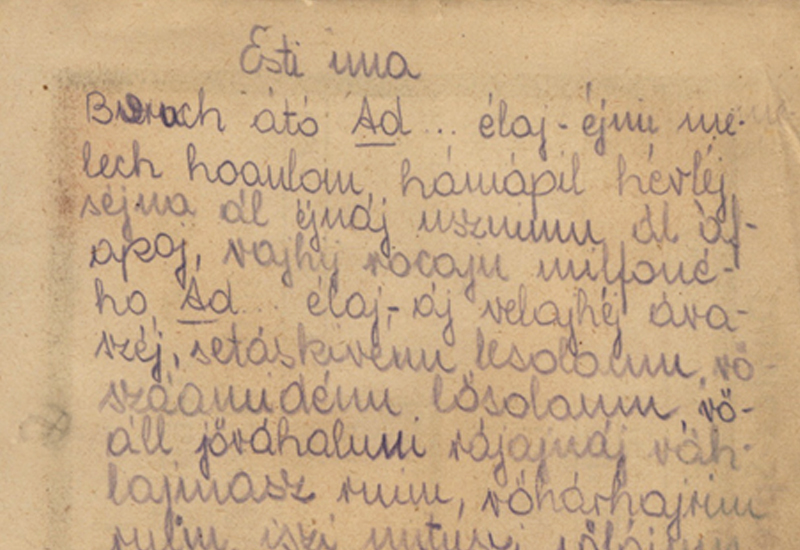 Esti ima
Boruch átó Ad... élaj-éjnu me-
lech hoaulom, hámápil hévléj
séjna ál éjnáj usznumu ál áf-
apaj, vajhij rocajn milfoné-
ho Ád... élaj-áj velajhéj ává-
széj, setáskivénu lesolaum, vö-
száamidénu lösolaum, vö-
áll jöváhalumi rájajnáj váh-
lajmasz ruim, vöhárhajrim